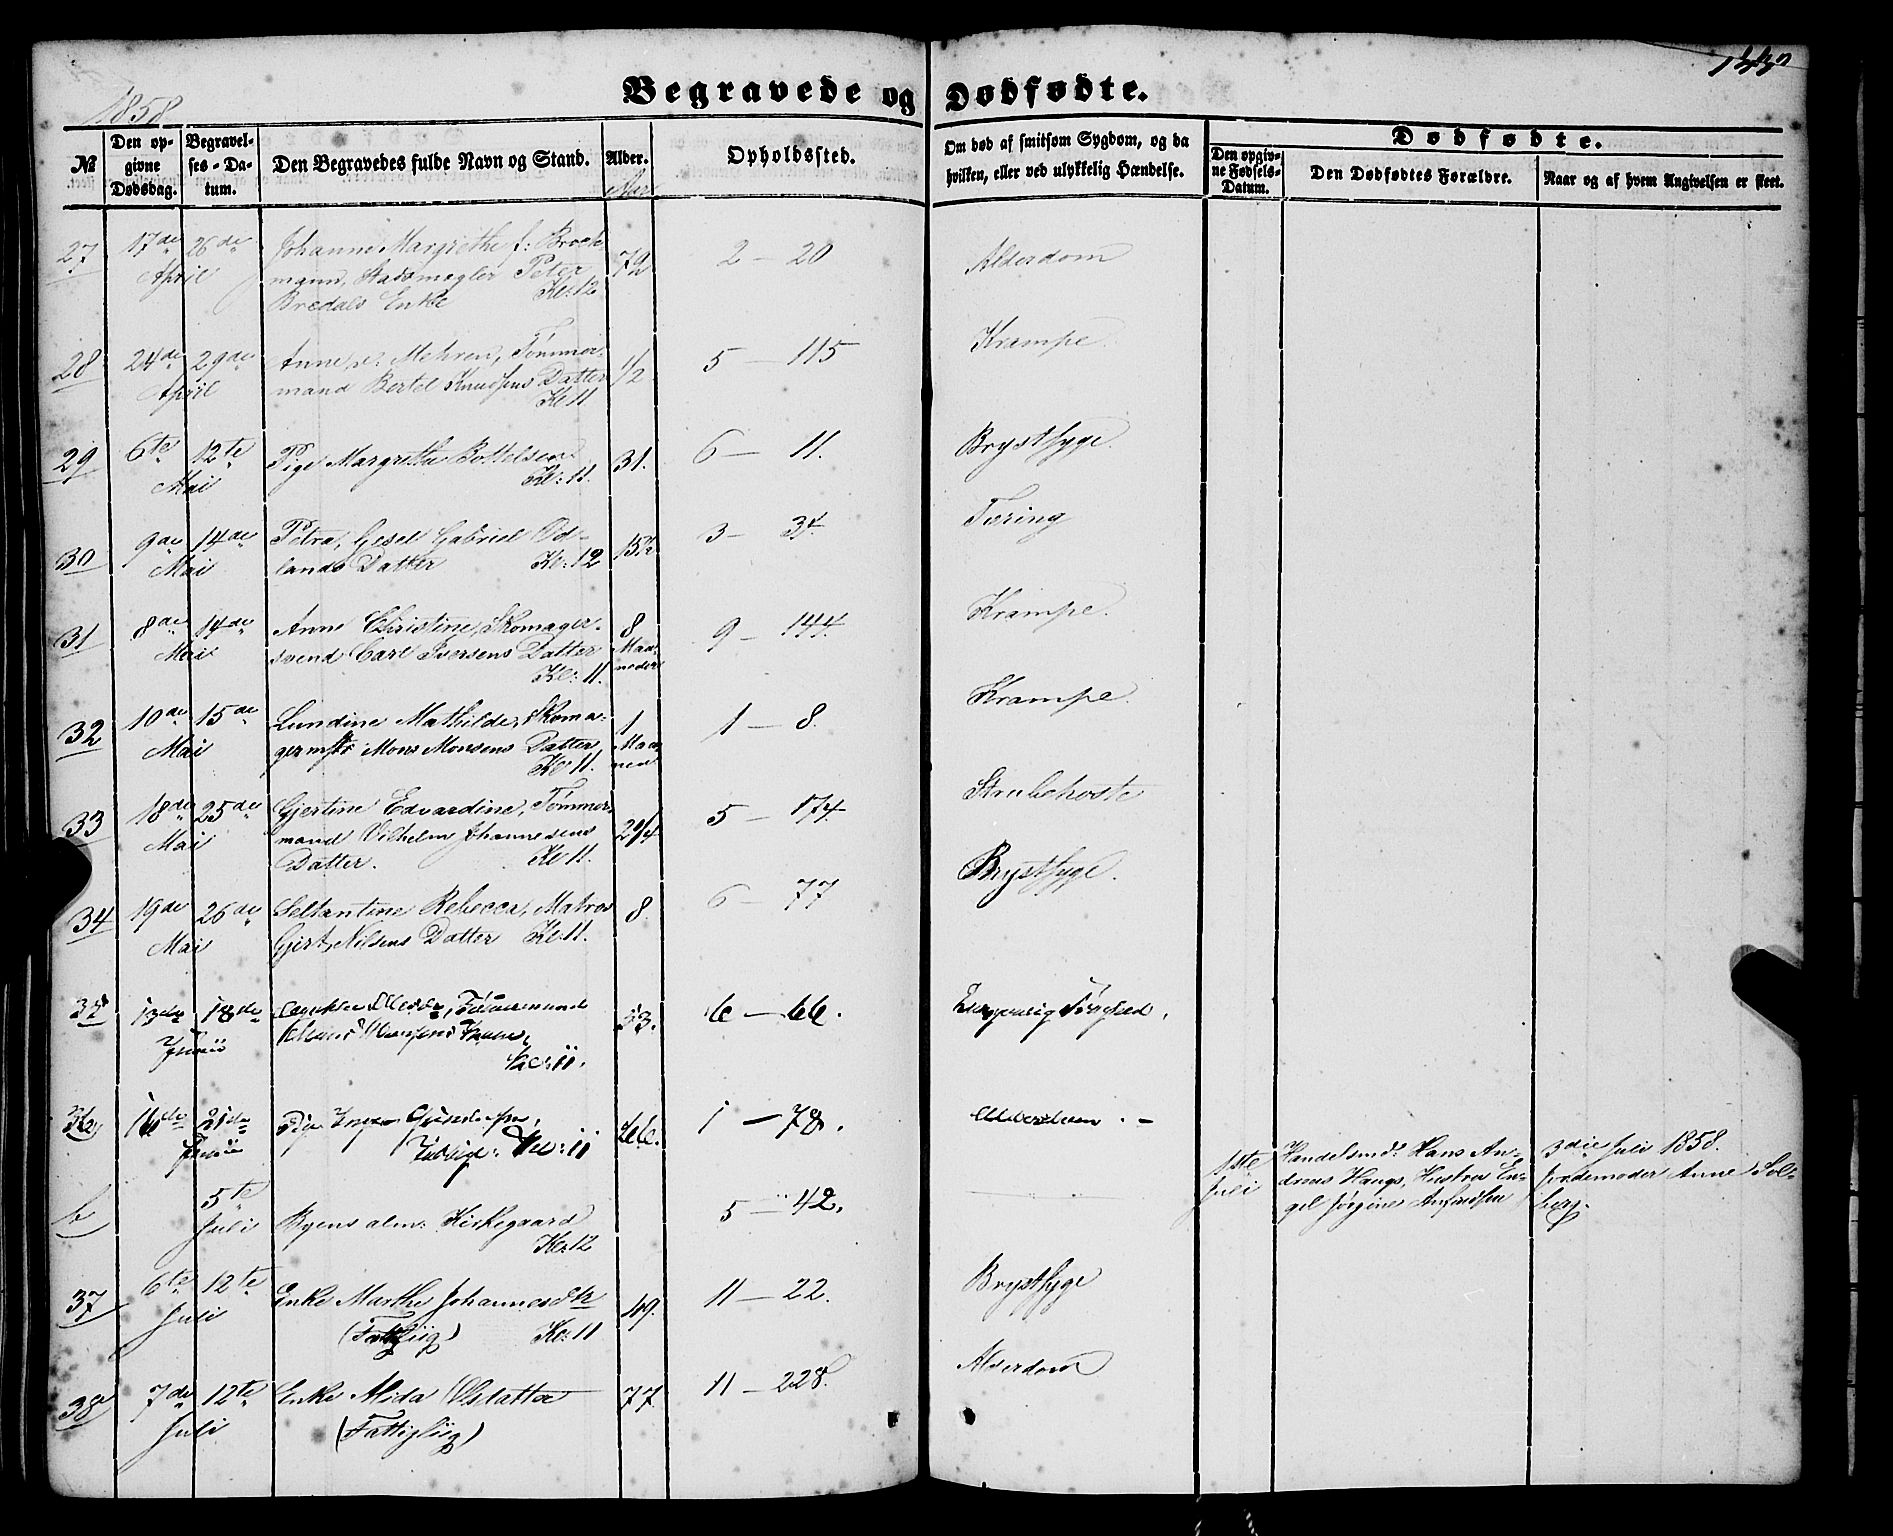 1858
Begravede og Dødfødte.
№
Den opgivne Dødsdag.
Begravelses-Datum.
Den Begravedes fulde Navn og Stand.
Alder.
Aar
Opholdssted.
Om død af smitsom Sygdom, og da hvilken, eller ved ulykkelig Hændelse.
Dødfødte.
Den opgivne Fødsels-Datum.
Den Dødfødtes Forældre.
Naar og af hvem Angivelsen er skeet.
27 17de 26de Johanne Margrethe f: Brock- 79 2 — 20 Alderdom
April mann, Stadsmegler Peter
Bredals Enke Kl: 12
28 24de 29de Anne v. Mehren, Tømmer- 1/2 5 — 115 Krampe.
April mand Bertel Knudsens Datter
Kl 11
29 6te 12te Pige Margrethe Bottelsen 31. 6 — 11. Brystsyge.
Mai Kl: 11.
30 9de 14de Petra, Gesel Gabriel Od- 3 — 34. Tæring
Mai lands Datter Kl: 12
31 8de 14de Anne Christine, Skomager- 8 9 — 144. Krampe.
Mai svend Carl Iversens Datter Maa-
Kl: 11. neder
32 10de 15de Lundine Mathilde, Skoma- 1 1 — 8. Krampe.
Mai germstr Mons Monsens Datter Maa-
Kl 11. ned
33 18de 25de Gjertine Edvardine, Tømmer- 2 1/4 5 — 174 Strubehoste
Mai mand Vilhelm Johannesens
Datter. Kl 11.
34 19de 26de Seltantine Rebecca, Matros 8. 6 — 77 Brystsyge.
Mai Gjert Nilsens Datter Kl: 11.
35 13de 18de Tømmermand 53. 6 — 66.
Junii
Kl: 11.
36 16de 21de Pige 66. 1 — 78. Alderdom. —
Junii Kl: 11
b 5te Byens alm: Kirkegaard 5 — 42.
Juli Kl: 12
1ste Handelsmd: Hans An- 3die Juli 1858.
Juli dreas Haugs, Hustru En- Jordemoder Anne Sol-
gel Jørgine berg.
37 6te 12te Enke Marthe Johannesdtr 49. 11 — 22. Brystsyge
Juli (Fattigliig) Kl: 11
38 7de 12te Enke Alida Olsdatter 77. 11 — 228. Alderdom
Juli (Fattigliig)